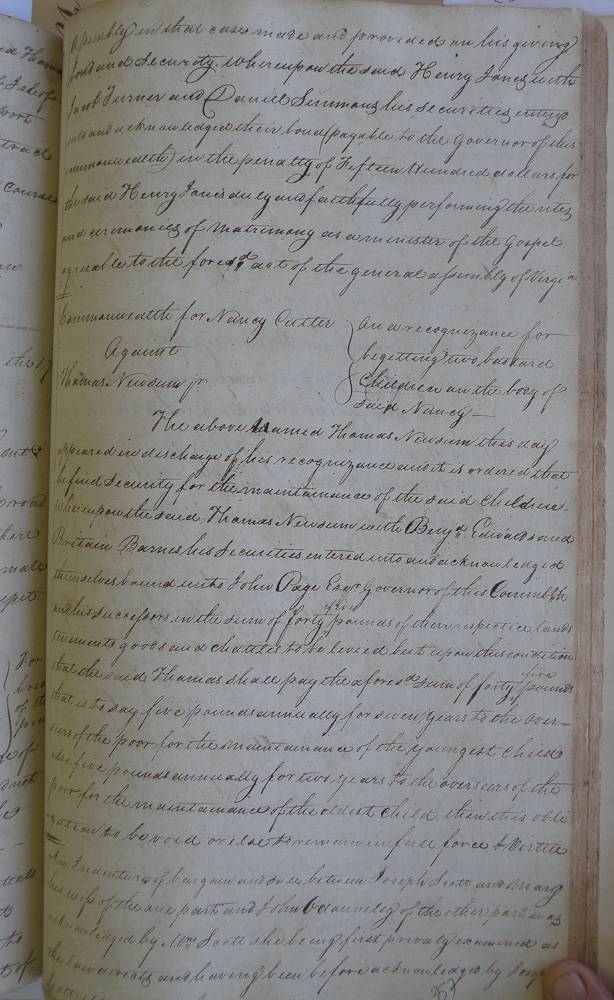 assembly in that case made and provided on his giving
bond and Security. Whereupon the said Henry Jones with
Jacob Turner and Daniel Simmons his Securities, entered
into and acknowledged their bond (payable to the Governor of this
commonwealth) in the penalty of Fifteen Hundred dollars for
the said Henry Jones duly and faithfully performing the rites
and ceremonies of matrimony as a minister of the Gospel
agreeable to the fores.d act of the general assembly of Virgi a
Commonwealth for Nancy Cutler
Against
Thomas Newsum jr.
On a recognizance for
begetting two bastard
Children on the body of
Said Nancy
The above Named Thomas Newsum this day
appeared in discharge of his recognizance and it is ordered that
he find security for the maintainance of the said Children.
Whereupon the said Thomas Newsum with Benj.n Edwards and
Britain Barnes his Securities entered into and acknowledged
themselves bound unto John Page Esqr. Governor of this Commlth
and his successors in the sum of forty five pounds of their respective lands
tenements goods and chattles to be levied but upon this condition
that the said Thomas shall pay the afores.d Sum of forty five pounds
that is to say five pounds annually for seven years to the over-
seers of the poor for the maintainance of the youngest Child
also five pounds annually for two years to the overseers of the
poor for the maintainance of the oldest Child then this obli
gation to be void or else to remain in full force & Virtue
An Indenture of bargain and sale between Joseph Scott and Mary
his wife of the one part and John of the other part was
acknowledged by Mrs. Scott she being first privily examined as
the law directs and having been before acknowledged by Josep